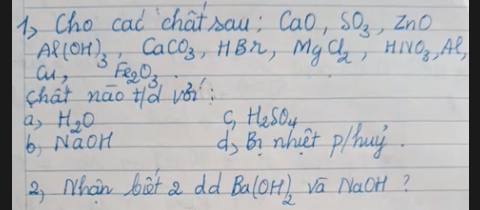 1, Cho các chất sau: CaO, SO3, ZnO
Al(OH)3, CaCO3, HBr, MgCl2, HNO3, Al,
Cu, Fe2O3.
Chất nào t/d với:
a, H2O c, H2SO4
b, NaOH d, Bị nhiệt p/huỷ.
2, Nhận biết 2 dd Ba(OH)2 và NaOH?